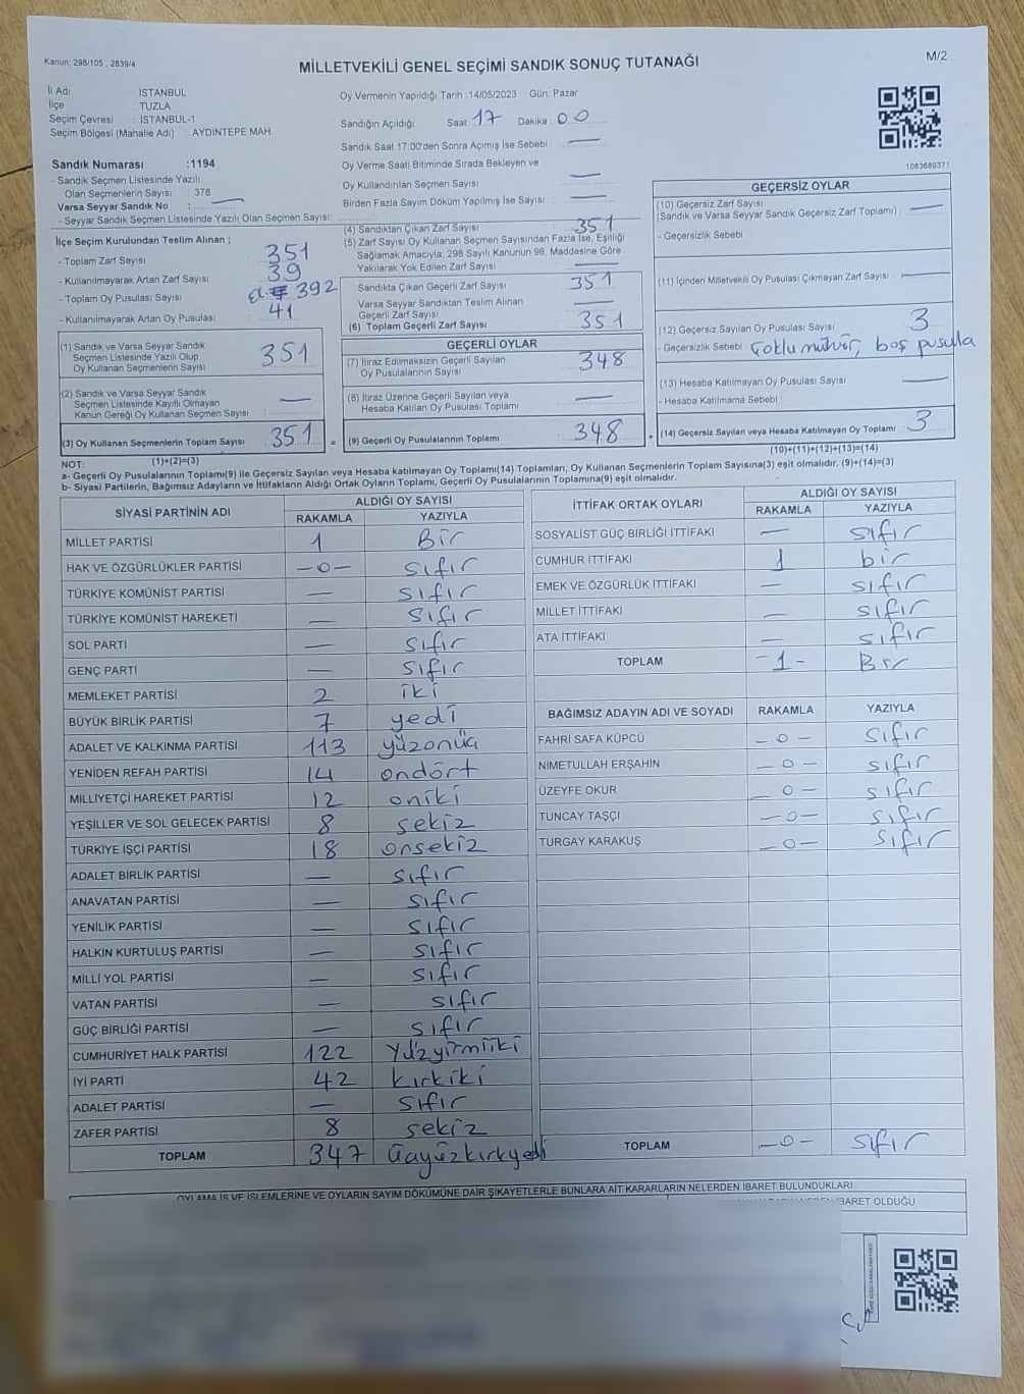 Kanun: 298/105 , 2839/4
M/2
MİLLETVEKİLİ GENEL SEÇİMİ SANDIK SONUÇ TUTANAĞI
İl Adı : İSTANBUL
İlçe : TUZLA
Seçim Çevresi : İSTANBUL-1
Seçim Bölgesi (Mahalle Adı) : AYDINTEPE MAH.
Sandık Numarası :1194
- Sandık Seçmen Listesinde Yazılı
Olan Seçmenlerin Sayısı : 378
Varsa Seyyar Sandık No : —
- Seyyar Sandık Seçmen Listesinde Yazılı Olan Seçmen Sayısı:
Oy Vermenin Yapıldığı Tarih :14/05/2023 Gün: Pazar
Sandığın Açıldığı: Saat 17 Dakika 00
Sandık Saat 17:00'den Sonra Açılmış İse Sebebi —
Oy Verme Saati Bitiminde Sırada Bekleyen ve
Oy Kullandırılan Seçmen Sayısı —
Birden Fazla Sayım Döküm Yapılmış İse Sayısı: —
1083689371
İlçe Seçim Kurulundan Teslim Alınan ;
- Toplam Zarf Sayısı 351
- Kullanılmayarak Artan Zarf Sayısı 39
- Toplam Oy Pusulası Sayısı 392
- Kullanılmayarak Artan Oy Pusulası 41
(1) Sandık ve Varsa Seyyar Sandık
Seçmen Listesinde Yazılı Olup
Oy Kullanan Seçmenlerin Sayısı 351
(2) Sandık ve Varsa Seyyar Sandık
Seçmen Listesinde Kayıtlı Olmayan
Kanun Gereği Oy Kullanan Seçmen Sayısı —
(3) Oy Kullanan Seçmenlerin Toplam Sayısı 351
(1)+(2)=(3)
(4) Sandıktan Çıkan Zarf Sayısı 351
(5) Zarf Sayısı Oy Kullanan Seçmen Sayısından Fazla İse, Eşitliği
Sağlamak Amacıyla, 298 Sayılı Kanunun 98. Maddesine Göre
Yakılarak Yok Edilen Zarf Sayısı —
Sandıkta Çıkan Geçerli Zarf Sayısı 351
Varsa Seyyar Sandıktan Teslim Alınan
Geçerli Zarf Sayısı —
(6) Toplam Geçerli Zarf Sayısı 351
GEÇERLİ OYLAR
(7) İtiraz Edilmeksizin Geçerli Sayılan
Oy Pusulalarının Sayısı 348
(8) İtiraz Üzerine Geçerli Sayılan veya
Hesaba Katılan Oy Pusulası Toplamı —
= (9) Geçerli Oy Pusulalarının Toplamı 348
GEÇERSİZ OYLAR
(10) Geçersiz Zarf Sayısı
(Sandık ve Varsa Seyyar Sandık Geçersiz Zarf Toplamı) —
- Geçersizlik Sebebi
(11) İçinden Milletvekili Oy Pusulası Çıkmayan Zarf Sayısı —
(12) Geçersiz Sayılan Oy Pusulası Sayısı 3
- Geçersizlik Sebebi Çoklu mühür, boş pusula
(13) Hesaba Katılmayan Oy Pusulası Sayısı —
- Hesaba Katılmama Sebebi
+ (14) Geçersiz Sayılan veya Hesaba Katılmayan Oy Toplamı 3
(10)+(11)+(12)+(13)=(14)
NOT:
a- Geçerli Oy Pusulalarının Toplamı(9) ile Geçersiz Sayılan veya Hesaba katılmayan Oy Toplamı(14) Toplamları, Oy Kullanan Seçmenlerin Toplam Sayısına(3) eşit olmalıdır. (9)+(14)=(3)
b- Siyasi Partilerin, Bağımsız Adayların ve İttifakların Aldığı Ortak Oyların Toplamı, Geçerli Oy Pusulalarının Toplamına(9) eşit olmalıdır.
SİYASİ PARTİNİN ADI ALDIĞI OY SAYISI
RAKAMLA YAZIYLA
MİLLET PARTİSİ 1 Bir
HAK VE ÖZGÜRLÜKLER PARTİSİ —0— sıfır
TÜRKİYE KOMÜNİST PARTİSİ — sıfır
TÜRKİYE KOMÜNİST HAREKETİ — sıfır
SOL PARTİ — sıfır
GENÇ PARTİ — sıfır
MEMLEKET PARTİSİ 2 iki
BÜYÜK BİRLİK PARTİSİ 7 yedi
ADALET VE KALKINMA PARTİSİ 113 yüzonüç
YENİDEN REFAH PARTİSİ 14 ondört
MİLLİYETÇİ HAREKET PARTİSİ 12 oniki
YEŞİLLER VE SOL GELECEK PARTİSİ 8 sekiz
TÜRKİYE İŞÇİ PARTİSİ 18 onsekiz
ADALET BİRLİK PARTİSİ — sıfır
ANAVATAN PARTİSİ — sıfır
YENİLİK PARTİSİ — sıfır
HALKIN KURTULUŞ PARTİSİ — sıfır
MİLLİ YOL PARTİSİ — sıfır
VATAN PARTİSİ — sıfır
GÜÇ BİRLİĞİ PARTİSİ — sıfır
CUMHURİYET HALK PARTİSİ 122 Yüzyirmiiki
İYİ PARTİ 42 kırkiki
ADALET PARTİSİ — sıfır
ZAFER PARTİSİ 8 sekiz
TOPLAM 347 üçyüzkırkyedi
İTTİFAK ORTAK OYLARI ALDIĞI OY SAYISI
RAKAMLA YAZIYLA
SOSYALİST GÜÇ BİRLİĞİ İTTİFAKI — sıfır
CUMHUR İTTİFAKI 1 bir
EMEK VE ÖZGÜRLÜK İTTİFAKI — sıfır
MİLLET İTTİFAKI — sıfır
ATA İTTİFAKI — sıfır
TOPLAM -1- Bir
BAĞIMSIZ ADAYIN ADI VE SOYADI RAKAMLA YAZIYLA
FAHRİ SAFA KÜPCÜ —0— sıfır
NİMETULLAH ERŞAHİN —0— sıfır
ÜZEYFE OKUR —0— sıfır
TUNCAY TAŞÇI —0— sıfır
TURGAY KARAKUŞ —0— sıfır
TOPLAM —0— sıfır
OYLAMA İŞ VE İŞLEMLERİNE VE OYLARIN SAYIM DÖKÜMÜNE DAİR ŞİKAYETLERLE BUNLARA AİT KARARLARIN NELERDEN İBARET BULUNDUKLARI
İBARET OLDUĞU